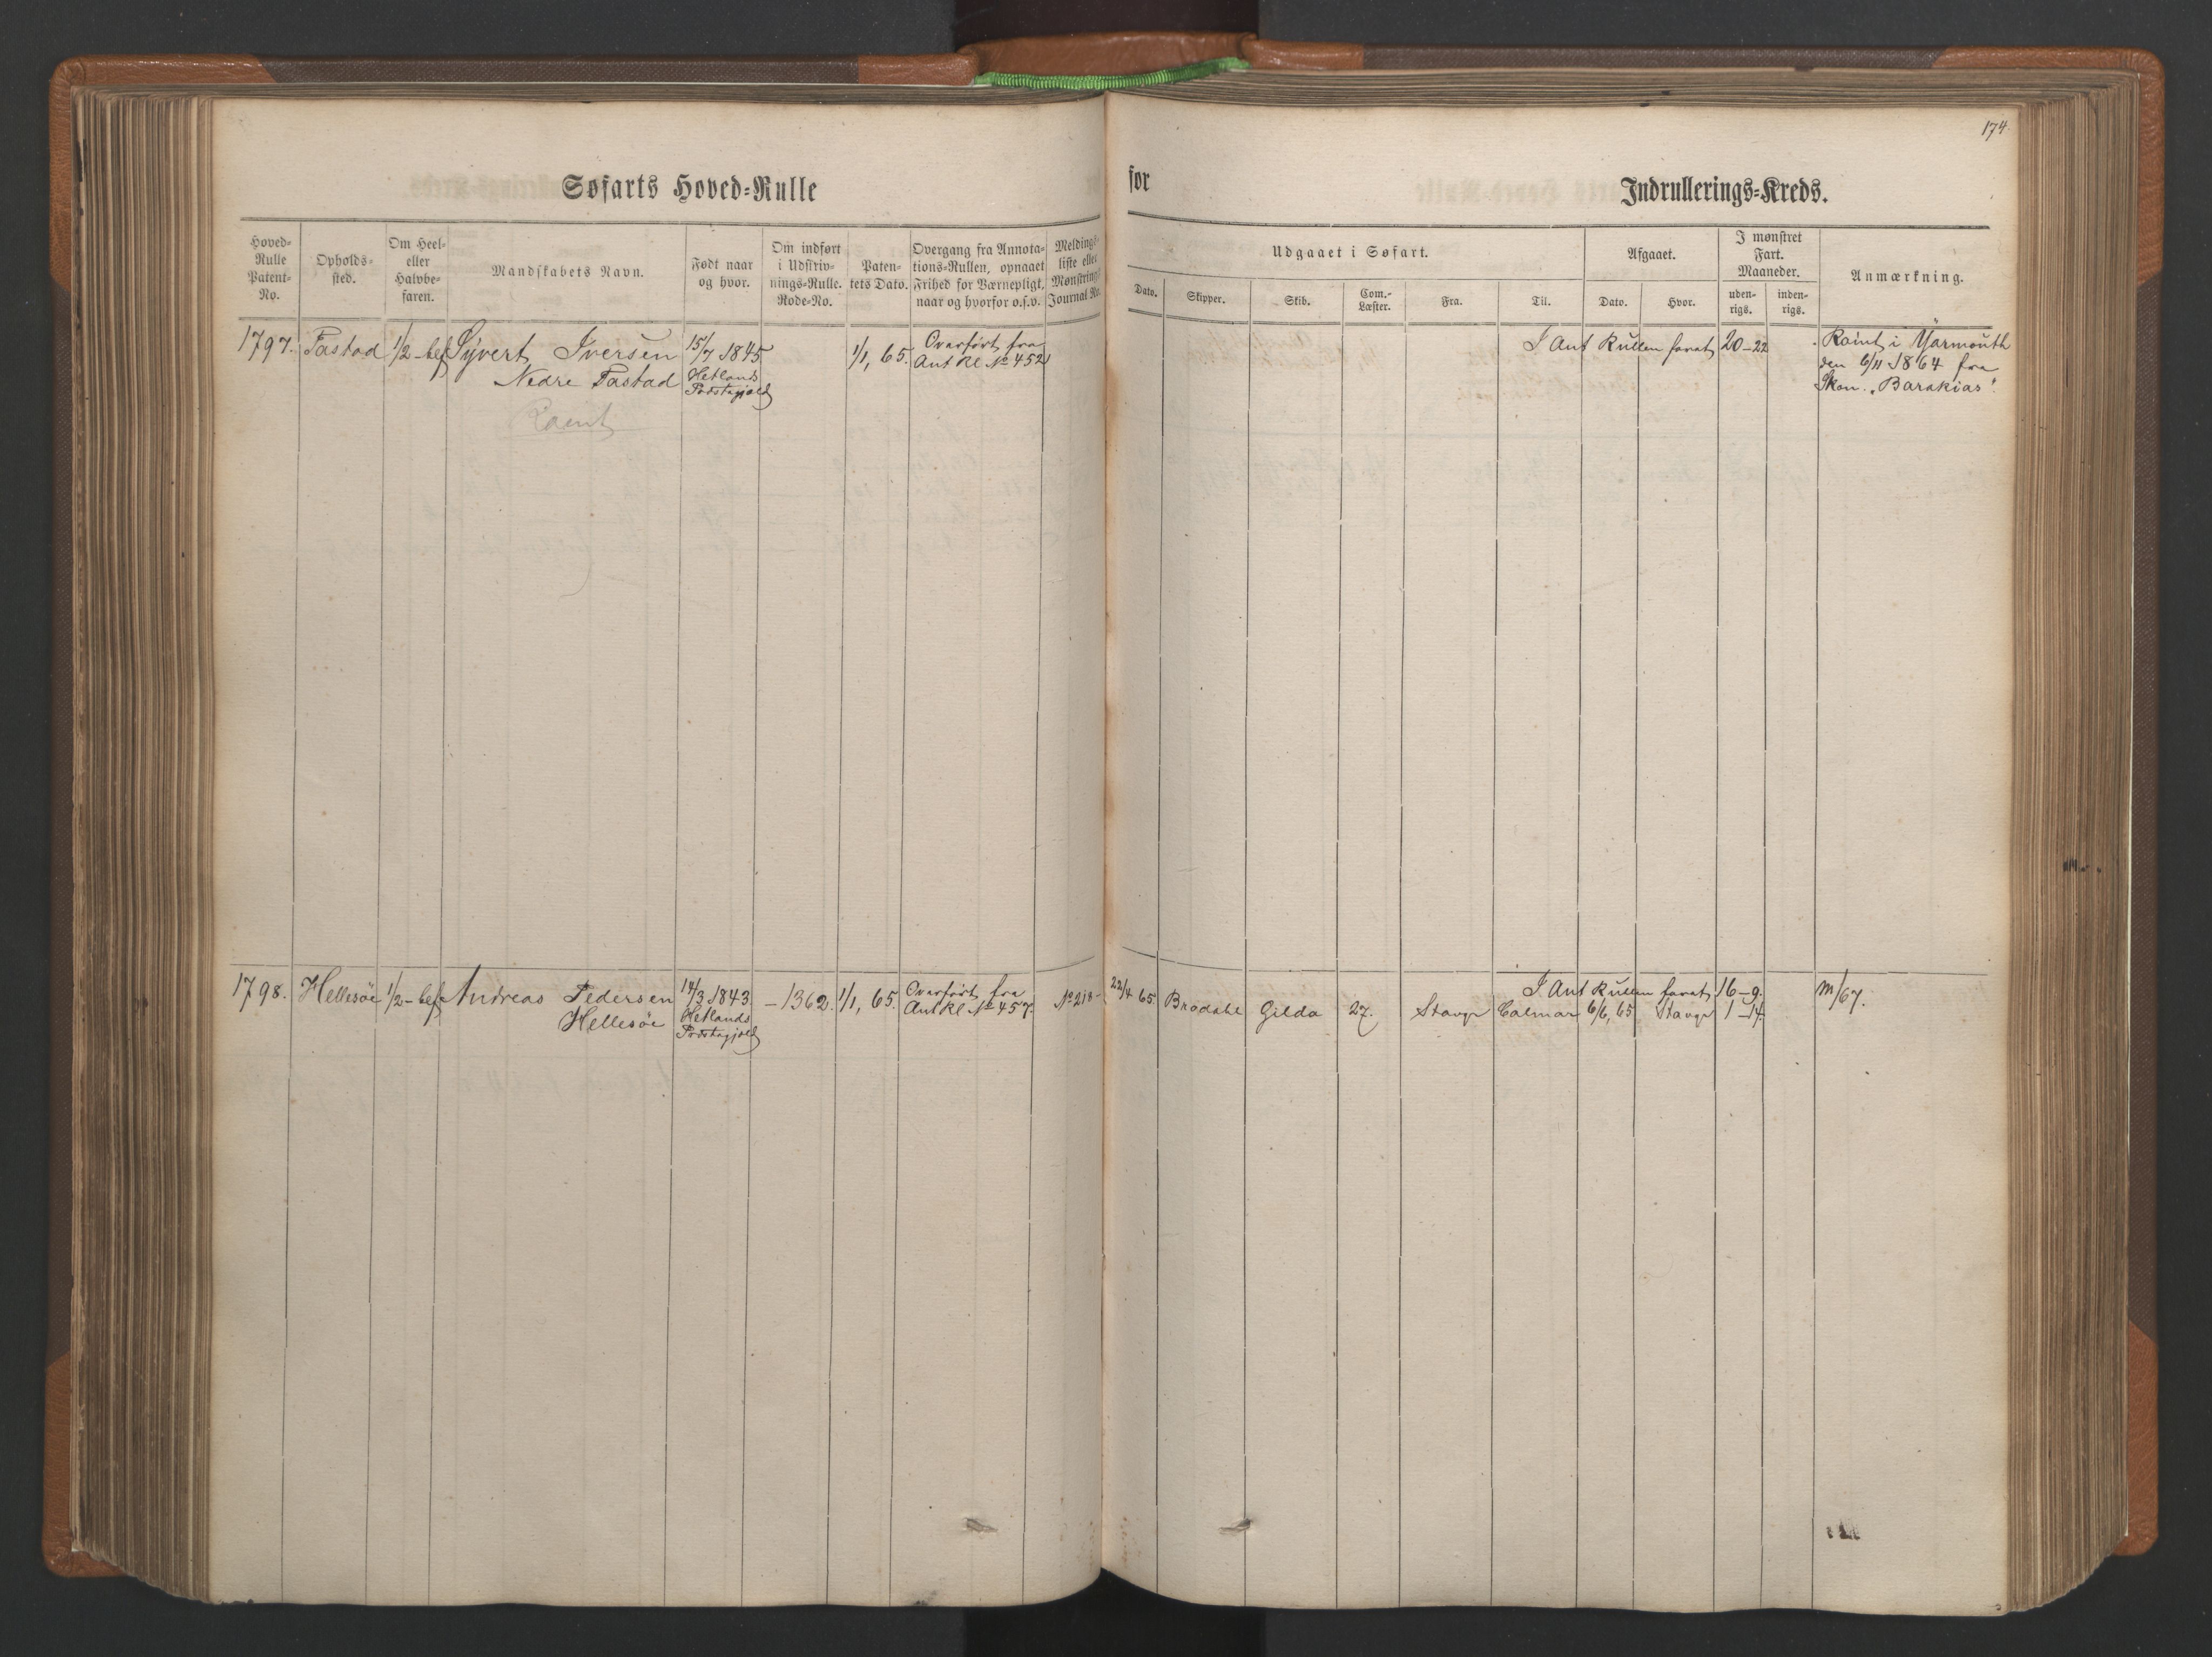 174.
Søfarts Hoved-Rulle for Indrullerings-Kreds.
Hoved-Rulle Patent-No.
Opholds-sted.
Om Heel- eller Halvbe-faren.
Mandskabets Navn.
Født naar og hvor.
Om indført i Udskriv-nings-Rulle. Rode-No.
Paten-tets Dato.
Overgang fra Annota-tions-Rullen, opnaaet Frihed for Værnepligt, naar og hvorfor o.s.v.
Meldings-liste eller Mønstrings Journal No.
Udgaaet i Søfart.
Dato. Skipper. Skib. Com.-Læster. Fra. Til.
Afgaaet.
Dato. Hvor.
I mønstret Fart. Maaneder.
uden-rigs. inden-rigs.
Anmærkning.
1797. Tastad 1/2-bef Syvert Iversen 15/7 1845 1/1, 65. Overført fra I Ant Rullen farat 20-22 Rømt i Yarmouth
Nedre Tastad Hetlands Ant Rl No 452 den 6/11 1864 fra
Præstegjeld Skon. "Barakias".
Rømt
1798. Hellesøe 1/2-bef Andreas Pedersen 14/3 1843 - 1362. 1/1, 65. Overført fra No 218- 22/4 65 Bradahl Gilda 27. Stavgr Calmar 6/6, 65 Stavgr 1-14.
Hellesøe Hetlands Ant Rl No 457. I Ant Rullen farat 16-9. m/67.
Præstegjeld